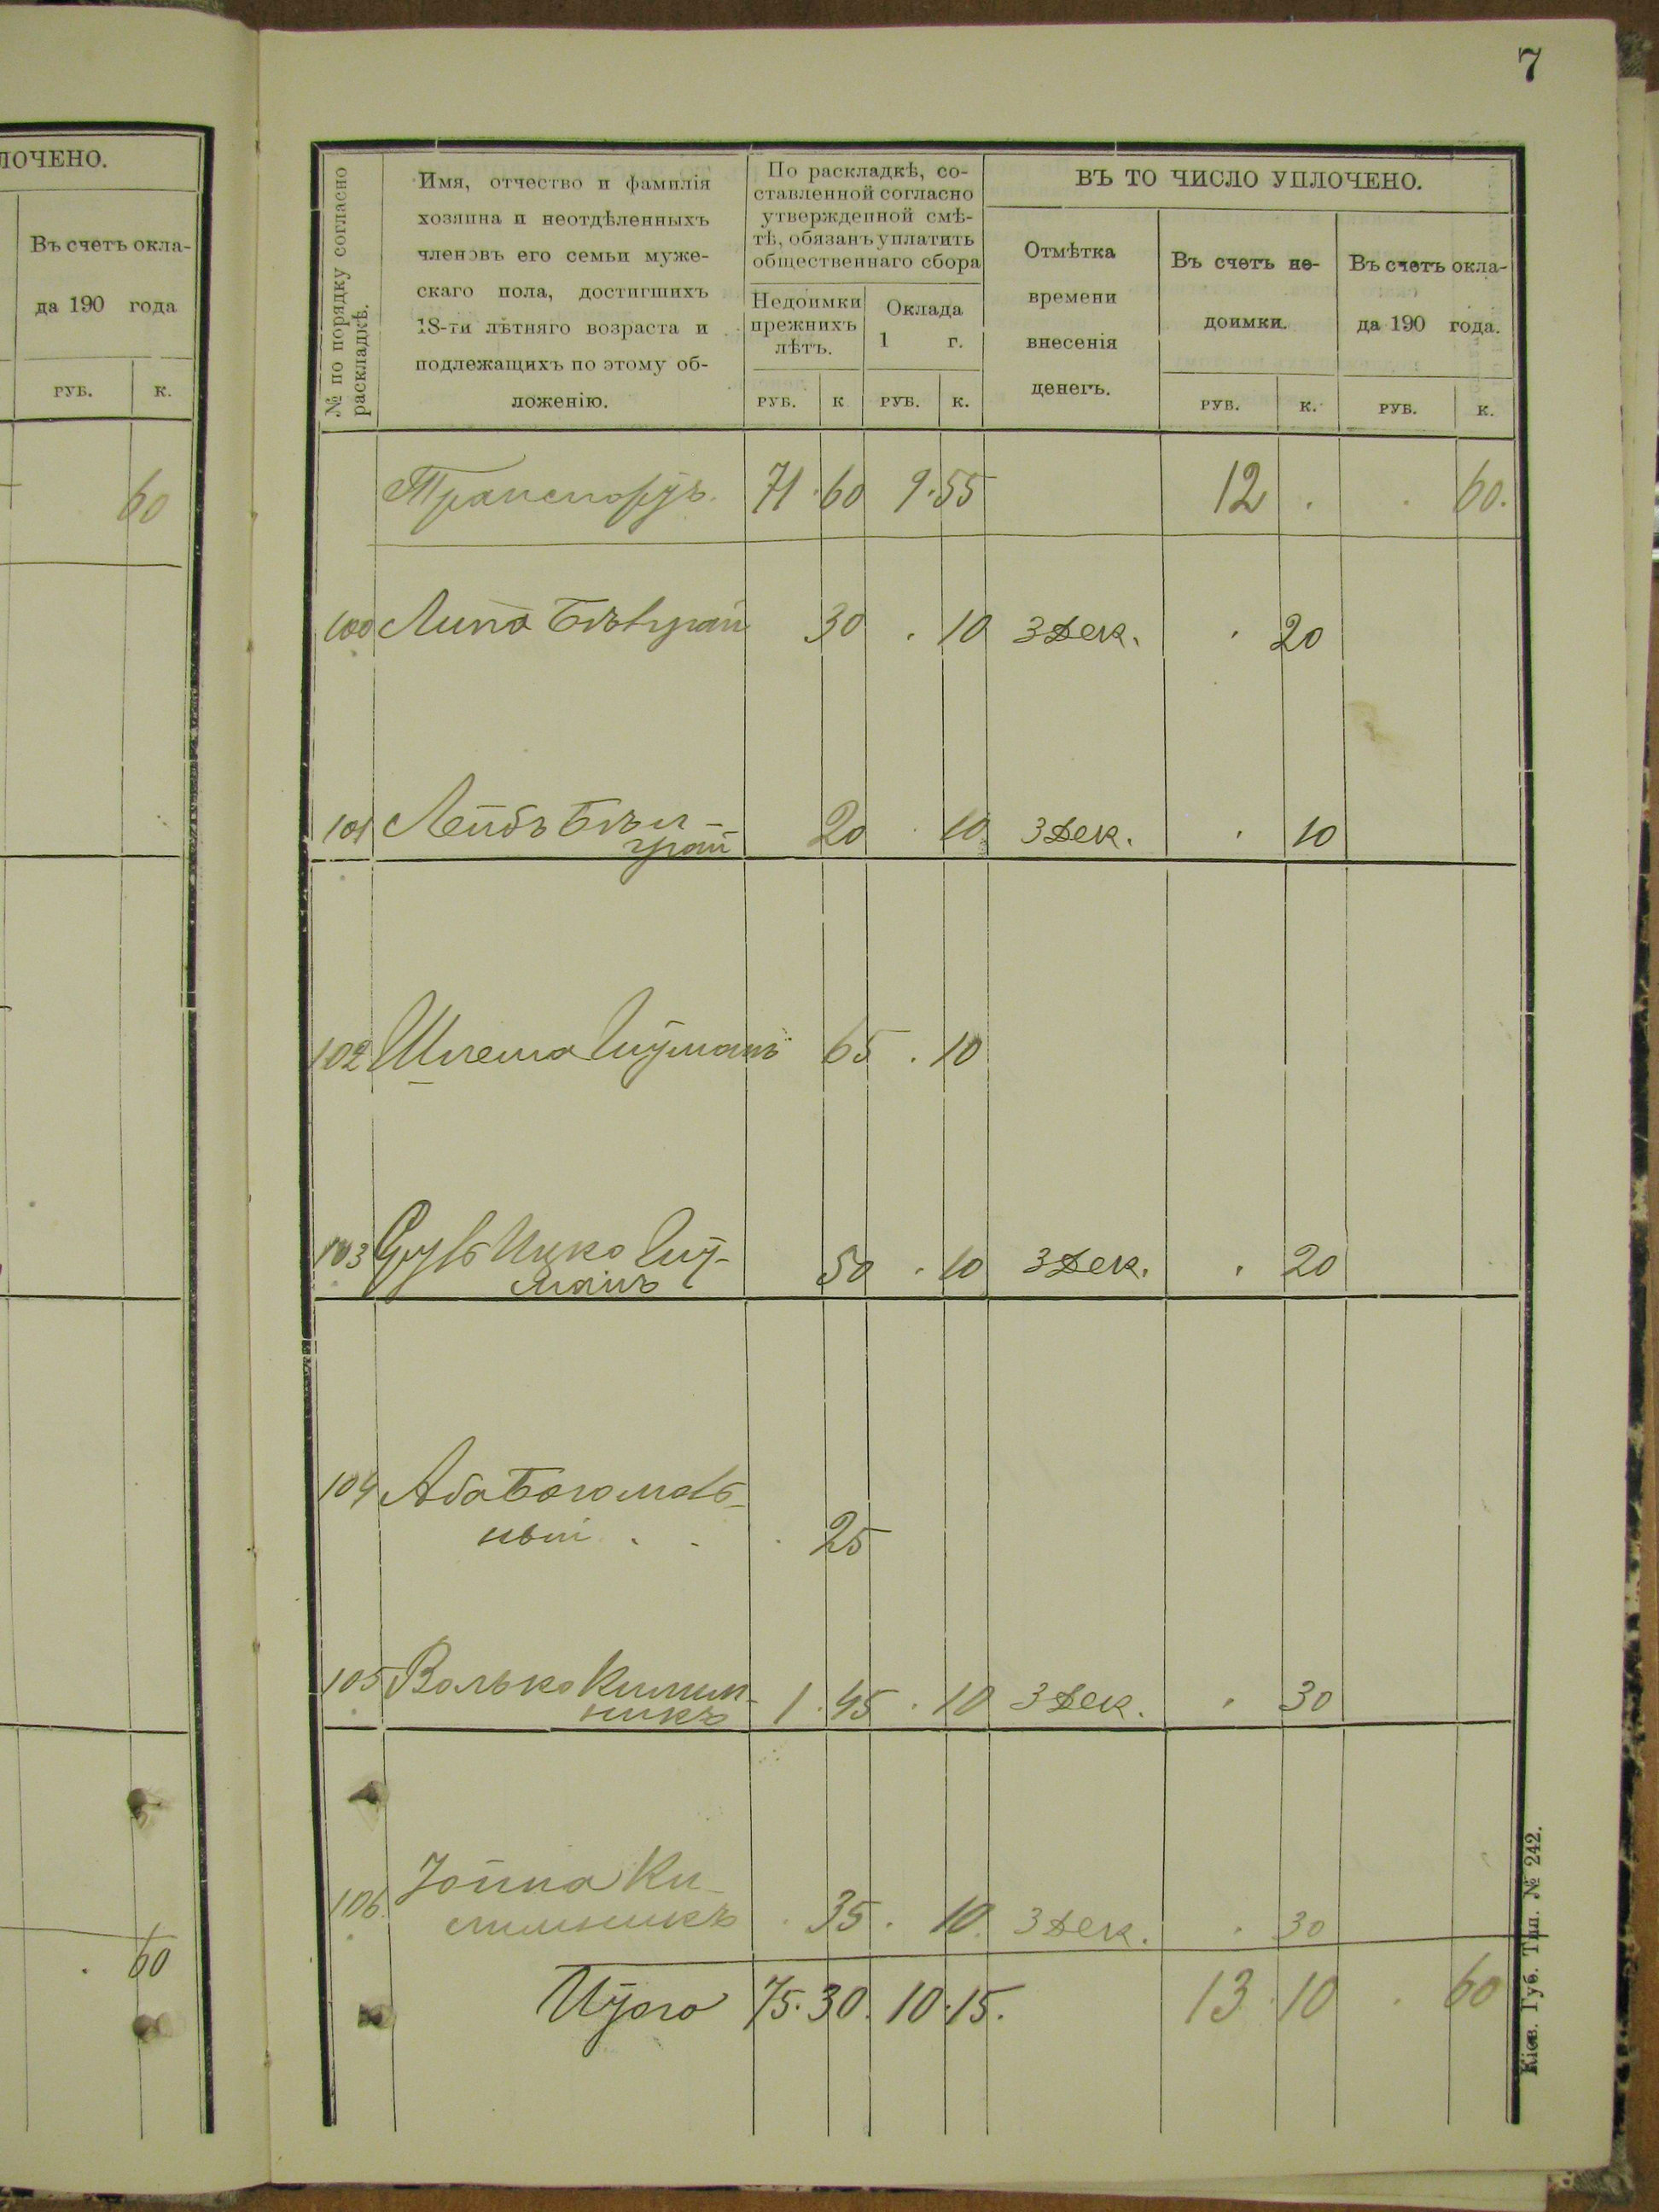 7
ЛОЧЕНО.
Въ счетъ окла-
да 190 года
РУБ. К.
60
. 60
№ по порядку согласно
раскладкѣ.
Имя, отчество и фамилія
хозяина и неотдѣленныхъ
членовъ его семьи муже-
скаго пола, достигшихъ
18-ти лѣтняго возраста и
подлежащихъ по этому об-
ложенію.
По раскладкѣ, со-
ставленной согласно
утвержденной смѣ-
тѣ, обязанъ уплатить
общественнаго сбора
Недоимки
прежнихъ
лѣтъ.
Оклада
1 г.
РУБ. К РУБ. К.
ВЪ ТО ЧИСЛО УПЛОЧЕНО.
Отмѣтка
времени
внесенія
денегъ.
Въ счетъ не-
доимки.
РУБ. К.
Въ счетъ окла-
да 190 года.
РУБ. К.
Транспортъ. 71 . 60 9 . 55 12 . . 60.
100 Липа 30 . 10 3 Дек. . 20
101 Лейбъ 20 . 10 3 Дек. . 10
102 Шлема 65 . 10
103 Ицко 50 . 10 3 Дек. . 20
104 Аба Богомоль-
ный . . . 25
105 Волько Килим-
никъ 1 . 45 . 10 3 Дек. . 30
106. Іойна Ки-
лимникъ . 35 . 10. 3 Дек. . 30
Итого 75. 30. 10. 15. 13 . 10 . 60
Кіев. Губ. Тип. № 242.